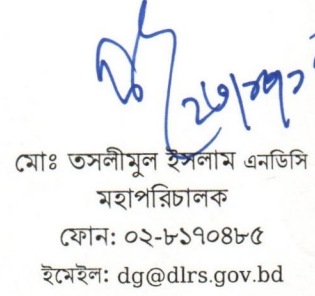 মোঃ তসলীমুল ইসলাম এনডিসি
মহাপরিচালক
ফোন: ০২-৮১৭০৪৮৫
ইমেইল: dg@dlrs.gov.bd